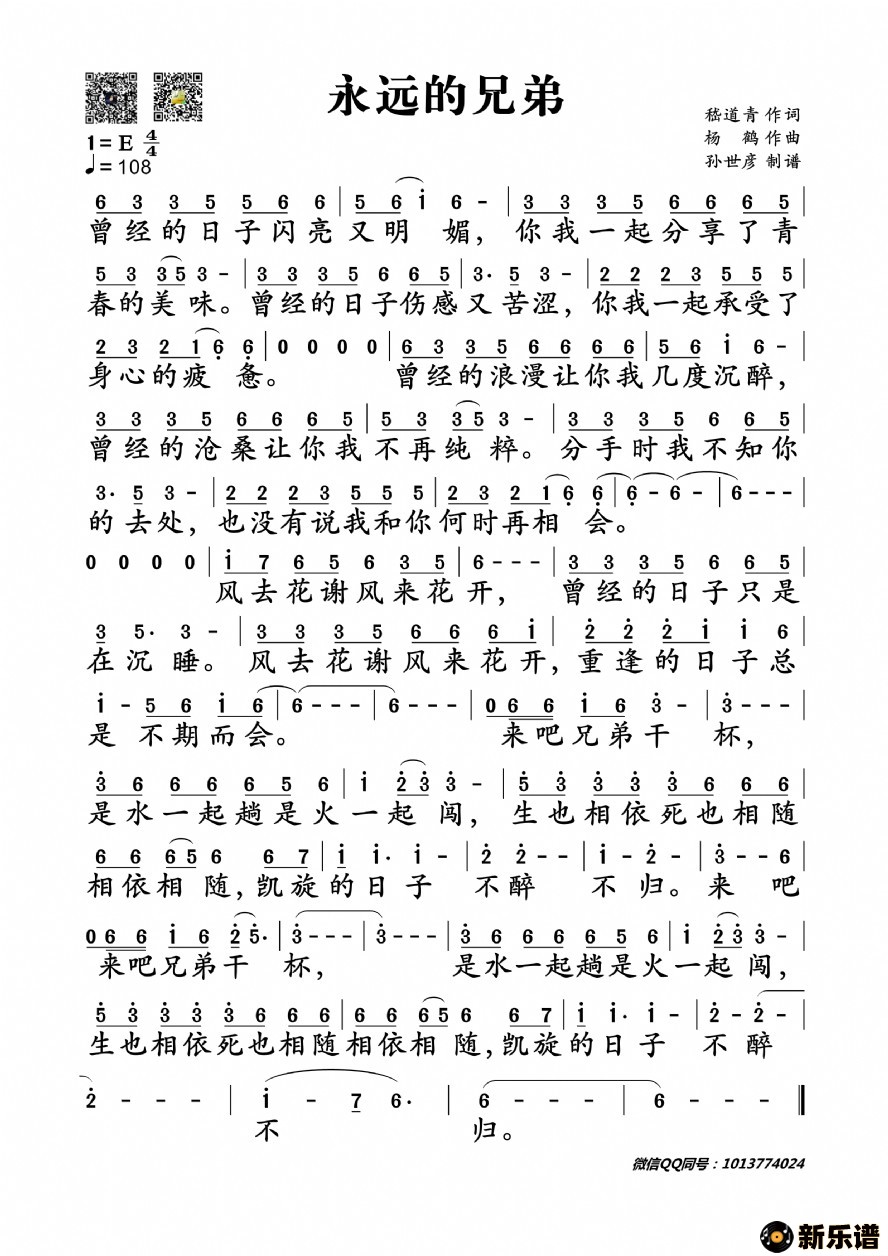 永远的兄弟
嵇道青 作词
杨 鹤 作曲
孙世彦 制谱
1=E 4/4
♩=108
6 3 3 5 5 5 6 6 | 5 6 i 6 - | 3 3 3 5 6 6 6 5 |
曾经的日子闪亮又明 媚，你我一起分享了青
5 3 3 5 3 - | 3 3 3 5 6 6 5 | 3· 5 3 - | 2 2 2 3 5 5 5 |
春的美 味。曾经的日子伤感又苦涩，你我一起承受了
2 3 2 1 6 6 | 0 0 0 0 | 6 3 3 5 6 6 6 6 | 5 6 i 6 - |
身心的疲 惫。 曾经的浪漫让你我几度沉醉，
3 3 3 5 6 6 6 5 | 5 3 3 5 3 - | 3 3 3 5 6 6 6 5 |
曾经的沧桑让你我不再纯 粹。分手时我不知你
3· 5 3 - | 2 2 2 3 5 5 5 | 2 3 2 1 6 6 | 6 - 6 - | 6 - - - |
的去处，也没有说我和你何时再相 会。
0 0 0 0 | i 7 6 5 6 3 5 | 6 - - - | 3 3 3 5 6 6 5 |
风去花谢风来花开， 曾经的日子只是
3 5· 3 - | 3 3 3 5 6 6 6 i | 2 2 2 i i 6 |
在沉 睡。风去花谢风来花开，重逢的日子总
i - 5 6 i 6 | 6 - - - | 6 - - - | 0 6 6 i 6 3 - | 3 - - - |
是 不期而会。 来吧兄弟干 杯，
3 6 6 6 6 5 6 | i 2 3 3 - | 5 3 3 3 3 6 6 6 |
是水一起趟是火一起 闯， 生也相依死也相随
6 6 6 5 6 6 7 | i i· i - | 2 2 - - | i - 2 - | 3 - - 6 |
相依相 随，凯旋的日子 不醉 不归。来 吧
0 6 6 i 6 2 5· | 3 - - - | 3 - - - | 6 6 6 6 6 5 6 | i 2 3 3 - |
来吧兄弟干 杯， 是水一起趟是火一起 闯，
5 3 3 3 3 6 6 6 | 6 6 6 5 6 6 7 | i i· i - | 2 - 2 - |
生也相依死也相随相依相 随，凯旋的日子 不醉
2 - - - | i - 7 6· | 6 - - - | 6 - - -
不 归。
微信QQ同号：1013774024
新乐谱